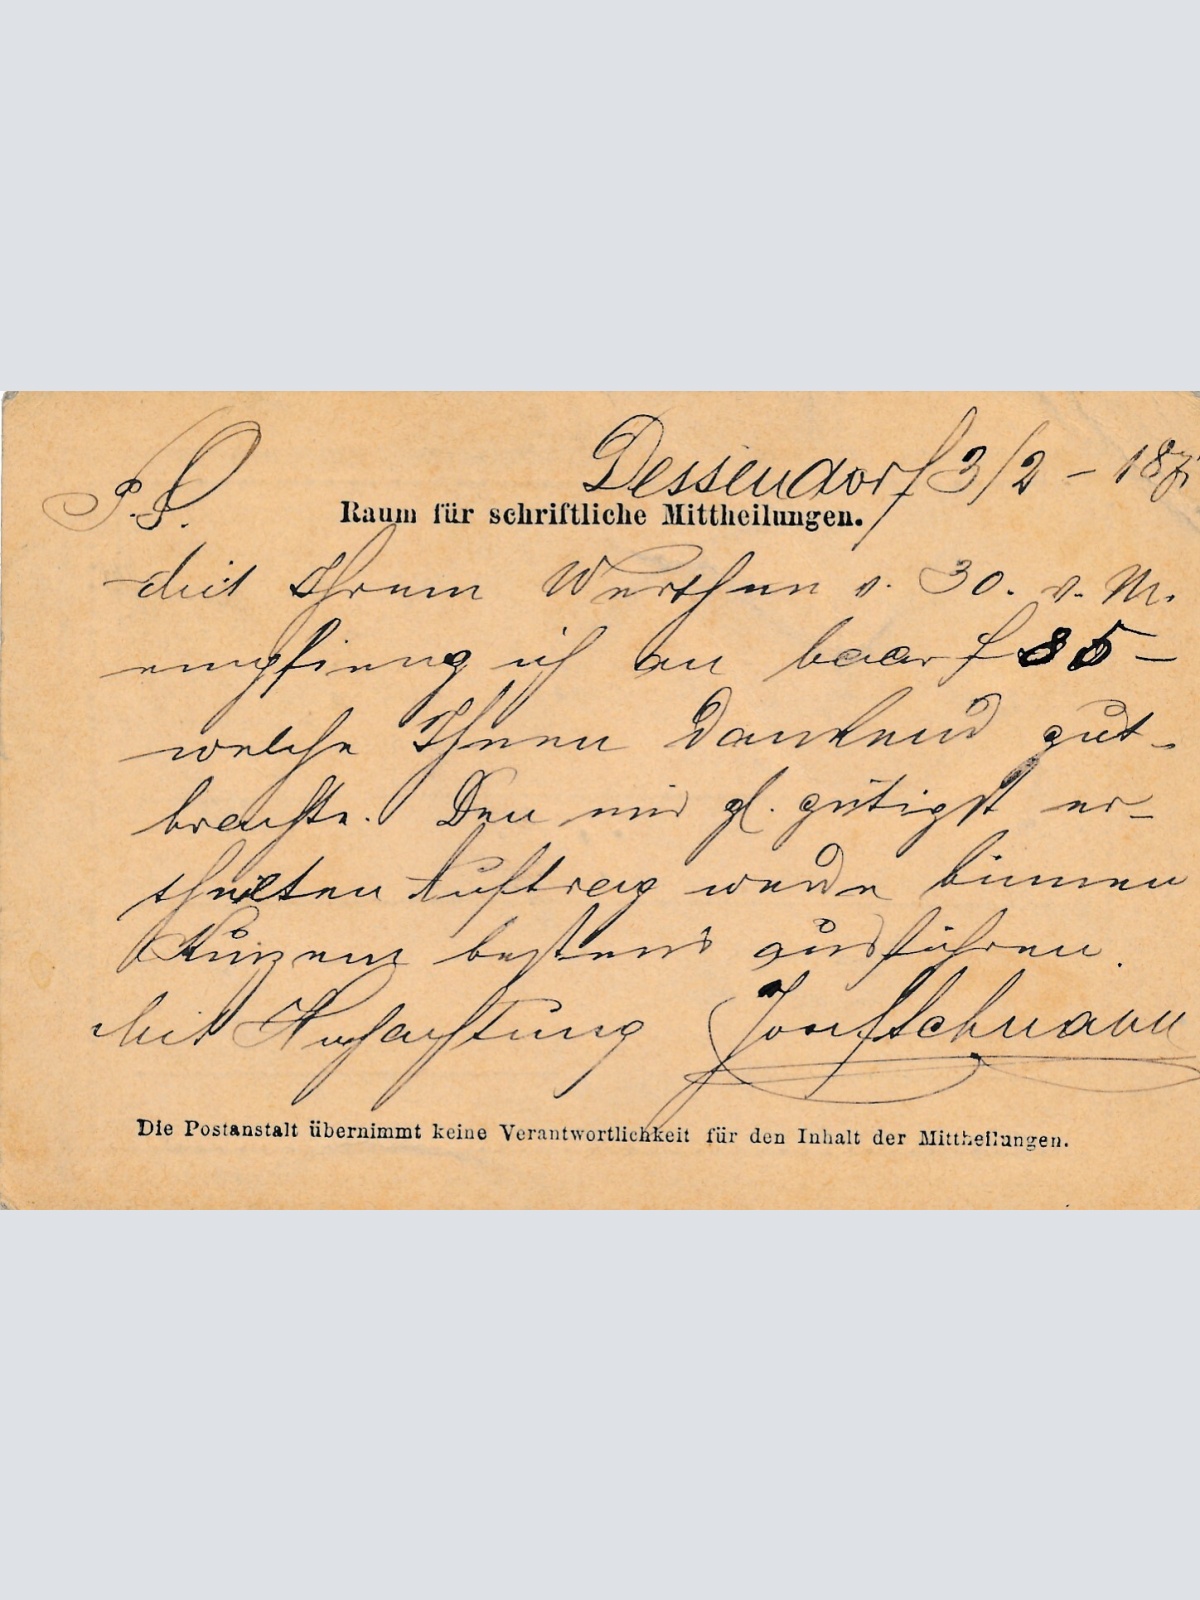 Dessendorf 3/2 – 187
P. P.
Raum für schriftliche Mittheilungen.
Mit Ihrem Werthen v. 30. v. M.
empfieng ich an baar f 85 –
welche Ihnen dankend gut-
brachte. Den mir gl. gütigst er-
theilten Auftrag werde binnen
Kurzem bestens ausführen.
Mit Hochachtung
Die Postanstalt übernimmt keine Verantwortlichkeit für den Inhalt der Mittheilungen.